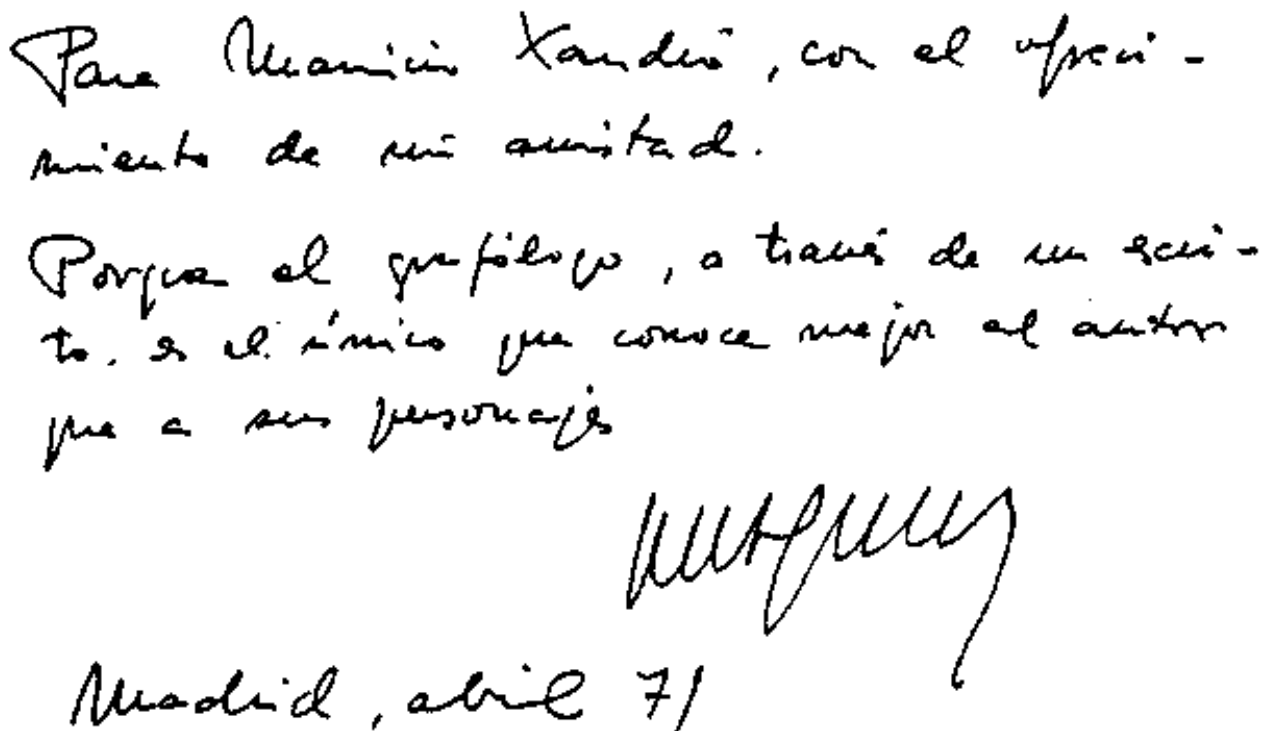 Para Mauricio Xandró, con el ofreci-
miento de mi amistad.
Porque el grafólogo, a través de un escri-
to, es el único que conoce mejor al autor
que a sus personajes
Madrid, abril 71